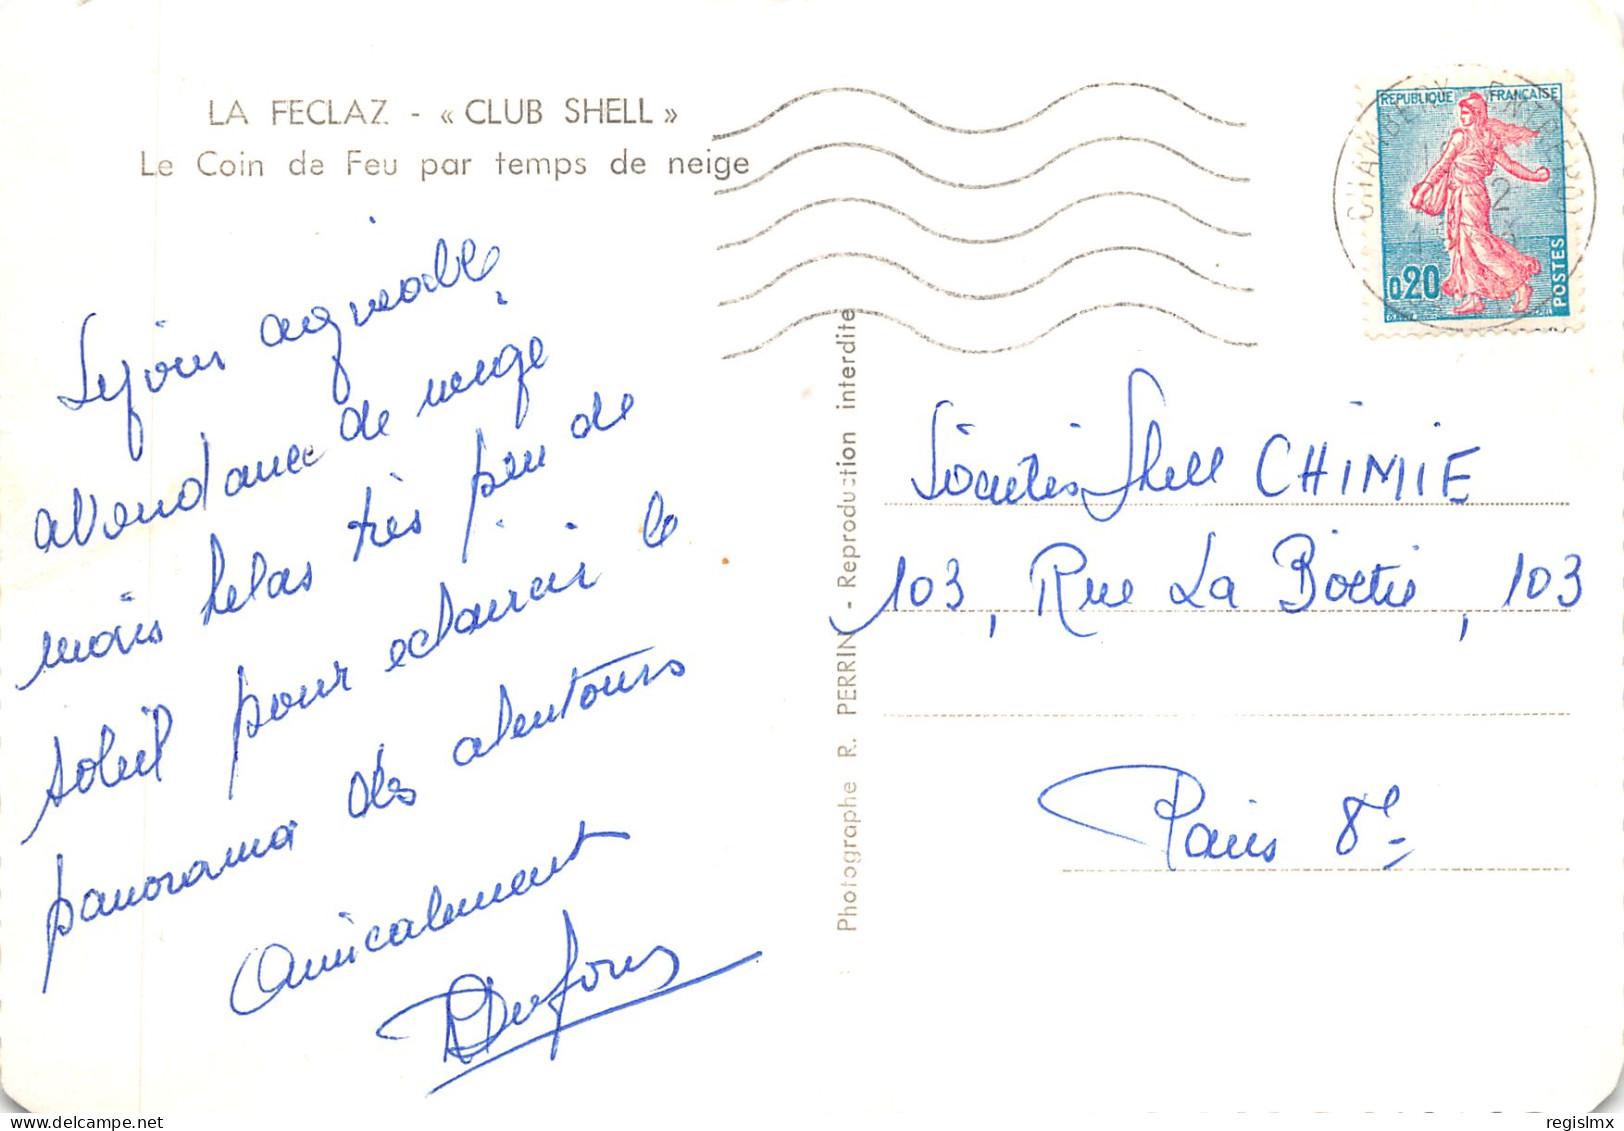 LA FECLAZ - « CLUB SHELL »
Le Coin de Feu par temps de neige
Sejour agreable
abondance de neige
mais helas très peu de
soleil pour eclaircir le
panorama des alentours
Amicalement
Dufour
Photographe R. PERRIN - Reproduction interdite
REPUBLIQUE FRANÇAISE
0,20
POSTES
CHAMBERY
Societes Shell CHIMIE
103, Rue La Boetie, 103
Paris 8e
regislmx